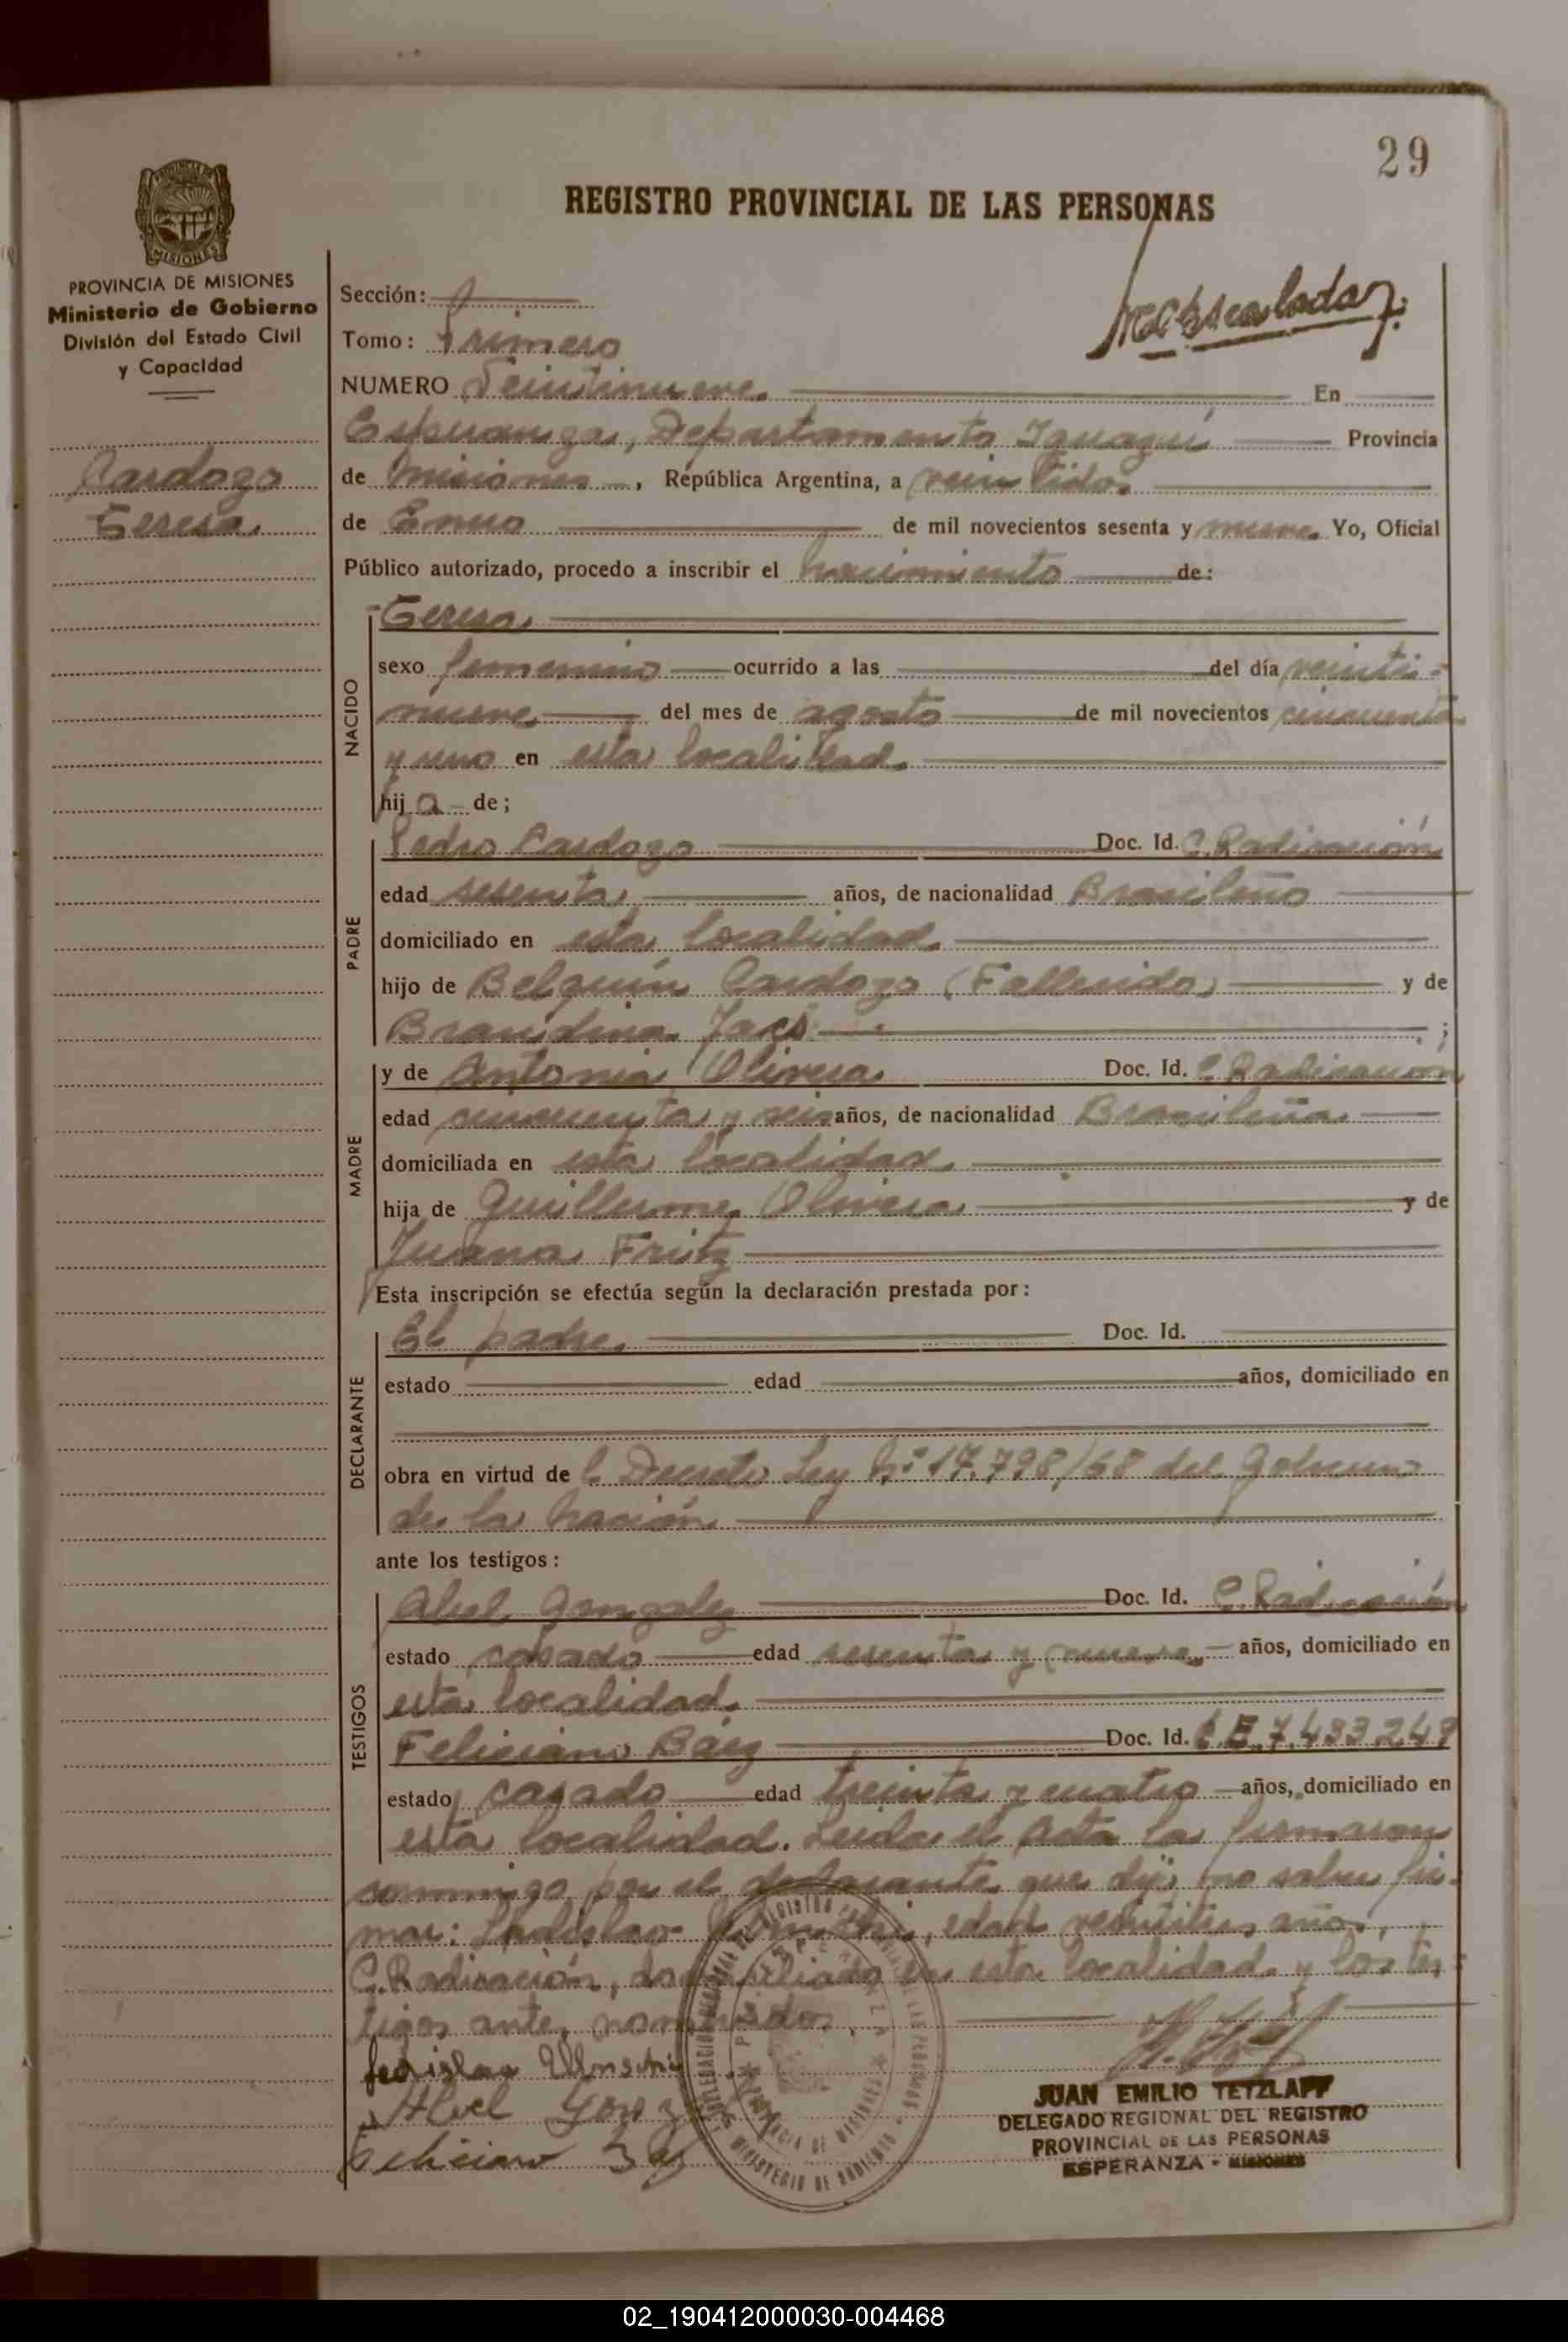 29
REGISTRO PROVINCIAL DE LAS PERSONAS
PROVINCIA DE MISIONES
Ministerio de Gobierno
División del Estado Civil
y Capacidad
Cardozo
Teresa
Sección:
Tomo: Primero
NUMERO Veintinueve En
Esperanza, Departamento Iguazú Provincia
de Misiones, República Argentina, a veintidos
de Enero de mil novecientos sesenta y nueve Yo, Oficial
Público autorizado, procedo a inscribir el nacimiento de:
NACIDO
Teresa
sexo femenino ocurrido a las del día veinti-
nueve del mes de agosto de mil novecientos cincuenta
y uno en esta localidad.
hij a de;
PADRE
Pedro Cardozo Doc. Id. C. Radicación
edad sesenta años, de nacionalidad Brasileño
domiciliado en esta localidad.
hijo de Belquín Cardozo (Fallecido) y de
Brandina ;
MADRE
y de Antonia Olivera Doc. Id. C. Radicación
edad cincuenta y seis años, de nacionalidad Brasileña
domiciliada en esta localidad.
hija de Guillerme Olivera y de
Juana Fritz
Esta inscripción se efectúa según la declaración prestada por:
DECLARANTE
El padre Doc. Id.
estado edad años, domiciliado en
obra en virtud de l Decreto Ley Nº 17.798/68 del Gobierno
de la Nación
ante los testigos:
TESTIGOS
Abel Gonzalez Doc. Id. C. Radicación
estado casado edad sesenta y nueve años, domiciliado en
esta localidad.
Feliciano Báez Doc. Id. C.E. 7.433.248
estado casado edad treinta y cuatro años, domiciliado en
esta localidad. Leida el Acta la firmaron
conmigo por el declarante que dijo no saber fir-
mar: Ladislao edad veintitres años,
C. Radicación, domiciliado en esta localidad y los tes-
tigos antes nombrados.
Abel
Feliciano
JUAN EMILIO TETZLAFF
DELEGADO REGIONAL DEL REGISTRO
PROVINCIAL DE LAS PERSONAS
ESPERANZA - MISIONES
02_190412000030-004468